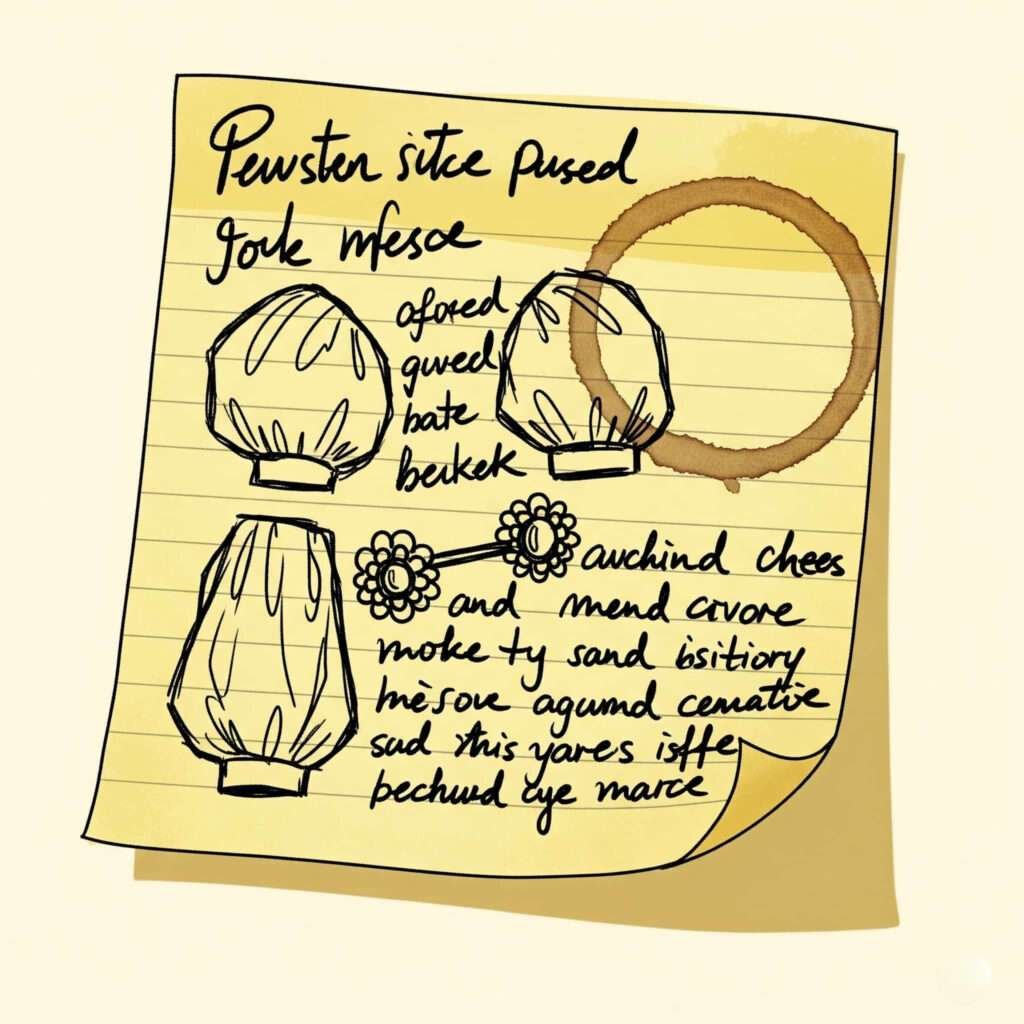 Pewsten sitce pused
gouk mfesce
ofored
gured
bate
beikek
auchind chees
and mend crvore
moke ty sand bsitiory
mèsoue agumd cematie
sud this yares isffe
bechuud cye marce